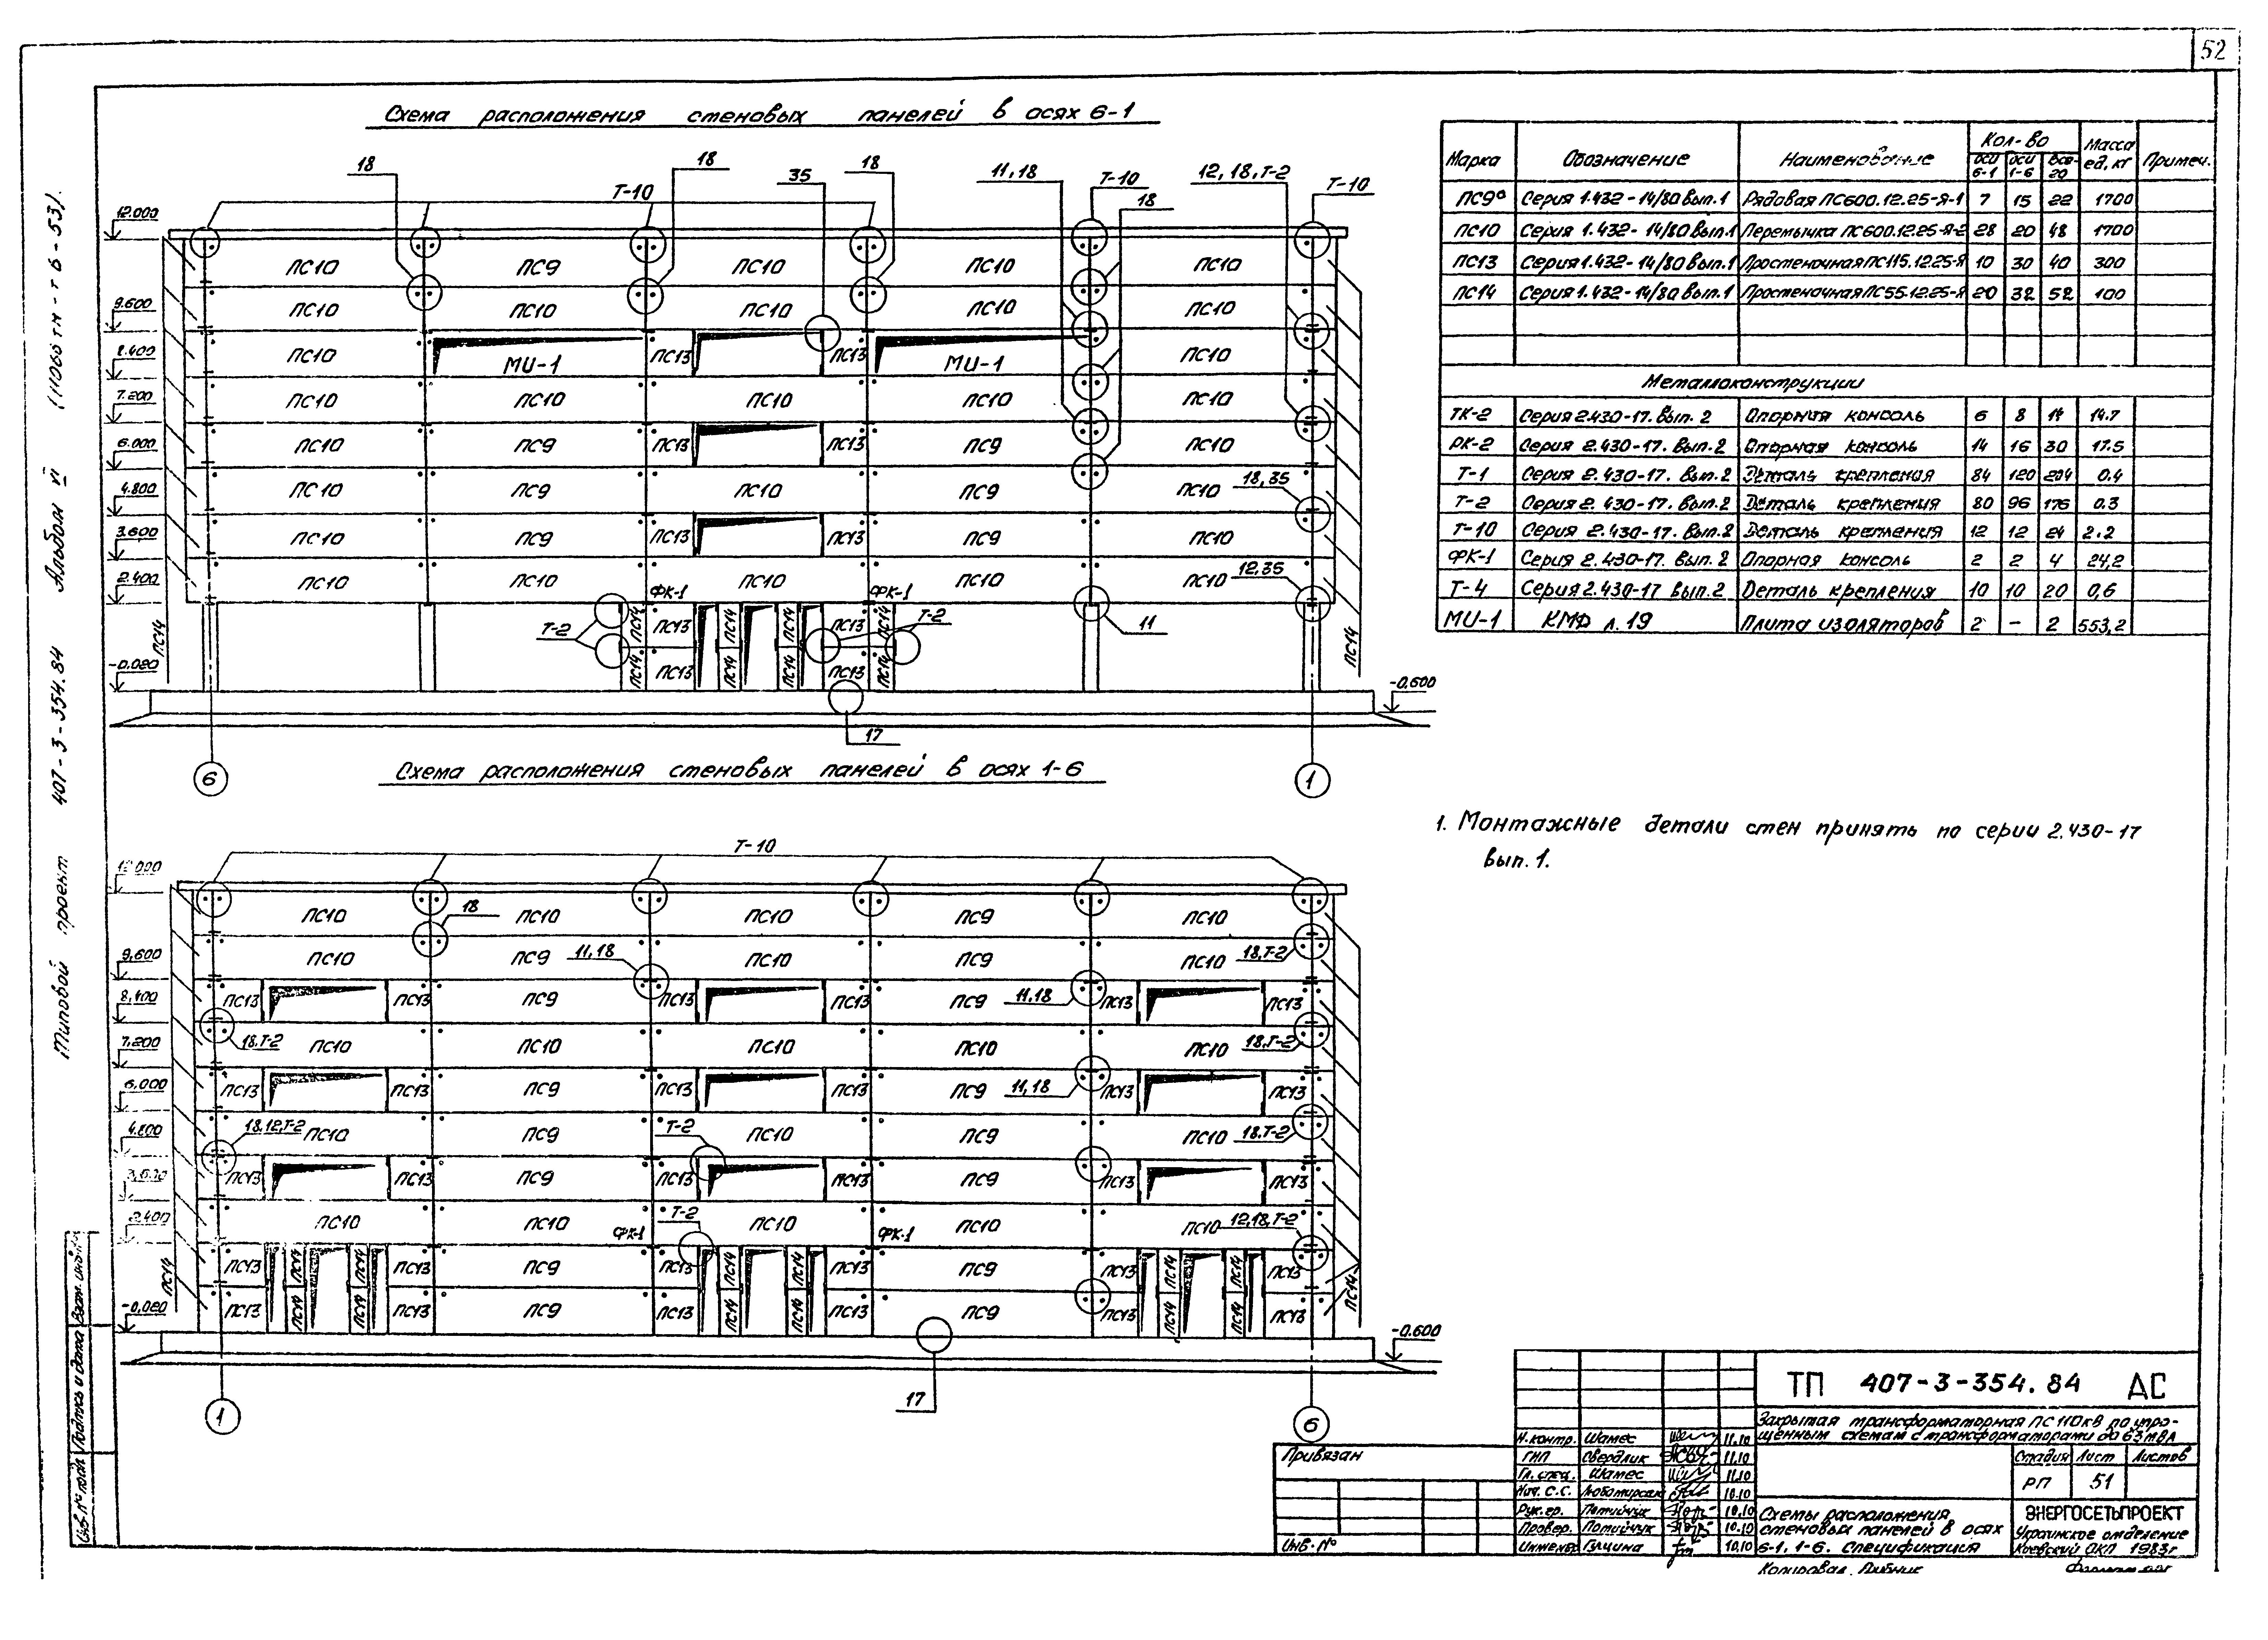 52
Схема расположения стеновых панелей в осях 6-1
18 18 35 18 11,18 Т-10 12,18,Т-2 Т-10
Т-10 18
12.000
ПС10 ПС9 ПС10 ПС10 ПС10
9.600
ПС10 ПС10 ПС10 ПС10 ПС10
8.400
ПС10 МИ-1 ПС13 ПС13 МИ-1 ПС10
7.200
ПС10 ПС10 ПС10 ПС10 ПС10
6.000
ПС10 ПС9 ПС13 ПС13 ПС9 ПС10
4.800
ПС10 ПС9 ПС10 ПС9 ПС10 18,35
3.600
ПС10 ПС9 ПС13 ПС13 ПС9 ПС10
2.400
ПС10 ПС10 ФК-1 ПС10 ФК-1 ПС10 ПС10 12,35
ПС14 Т-2 ПС14 ПС13 ПС14 ПС14 ПС13 ПС14 Т-2 11 ПС14
-0.080
ПС14 ПС13 ПС14 ПС14 ПС13 ПС14
-0.600
17
6 1
Схема расположения стеновых панелей в осях 1-6
Т-10
12.000
ПС10 ПС10 ПС10 ПС9 ПС10
18
9,600
ПС10 ПС9 11,18 ПС10 ПС9 ПС10 18,Т-2
8,400
ПС13 ПС13 ПС9 ПС13 ПС13 ПС9 11,18 ПС13 ПС13
7,200
18,Т-2 ПС10 ПС10 ПС10 ПС10 ПС10 18,Т-2
6,000
ПС13 ПС13 ПС9 ПС13 ПС13 ПС9 11,18 ПС13 ПС13
4.800
18,12,Т-2 ПС10 ПС9 Т-2 ПС10 ПС9 ПС10 18,Т-2
3,600
ПС13 ПС13 ПС9 ПС13 ПС13 ПС9 ПС13 ПС13
2,400
ПС10 ПС10 ФК-1 Т-2 ПС10 ФК-1 ПС10 ПС10 12,18,Т-2
ПС14 ПС13 ПС14 ПС14 ПС13 ПС9 ПС13 ПС14 ПС14 ПС13 ПС9 ПС13 ПС14 ПС14 ПС13 ПС14
-0,080
ПС13 ПС14 ПС14 ПС13 ПС9 ПС13 ПС14 ПС14 ПС13 ПС9 ПС13 ПС14 ПС14 ПС13
-0.600
17
1 6
Марка Обозначение Наименование Кол-во Масса ед, кг Примеч.
оси 6-1 оси 1-6 Все-го
ПС9а Серия 1.432-14/80 вып.1 Рядовая ПС600.12.25-Я-1 7 15 22 1700
ПС10 Серия 1.432-14/80 вып.1 Перемычка ПС600.12.25-Я-2 28 20 48 1700
ПС13 Серия 1.432-14/80 вып.1 Простеночная ПС115.12.25-Я 10 30 40 300
ПС14 Серия 1.432-14/80 вып.1 Простеночная ПС55.12.25-Я 20 32 52 100
Металлоконструкции
ТК-2 Серия 2.430-17. вып. 2 Опорная консоль 6 8 14 14.7
РК-2 Серия 2.430-17. вып.2 Опорная консоль 14 16 30 17.5
Т-1 Серия 2.430-17. вып.2 Деталь крепления 84 120 204 0.4
Т-2 Серия 2.430-17. вып.2 Деталь крепления 80 96 176 0.3
Т-10 Серия 2.430-17. вып.2 Деталь крепления 12 12 24 2.2
ФК-1 Серия 2.430-17. вып.2 Опорная консоль 2 2 4 24,2
Т-4 Серия 2.430-17 вып.2 Деталь крепления 10 10 20 0,6
МИ-1 КМФ л.19 Плита изоляторов 2 - 2 553,2
1. Монтажные детали стен принять по серии 2.430-17
вып. 1.
Типовой проект 407-3-354.84 Альбом (11066тм-т6-53).
Инв.№ подл. Подпись и дата Взам. инв.№
Привязан
Инв.№
ТП 407-3-354.84 АС
Закрытая трансформаторная ПС 110кВ по упро-
щенным схемам с трансформаторами до 63 мВА
Н.контр. Шамес 11.10
ГИП Свердлик 11.10
Гл.спец. Шамес 11.10
Нач. С.С. 10.10
Рук.гр. Потийчук 10.10
Провер. Потийчук 10.10
Инженер Гулина 10.10
Стадия Лист Листов
РП 51
Схемы расположения
стеновых панелей в осях
6-1, 1-6. Спецификация
ЭНЕРГОСЕТЬПРОЕКТ
Украинское отделение
Киевский ОКП 1983г
Копировал.
Формат